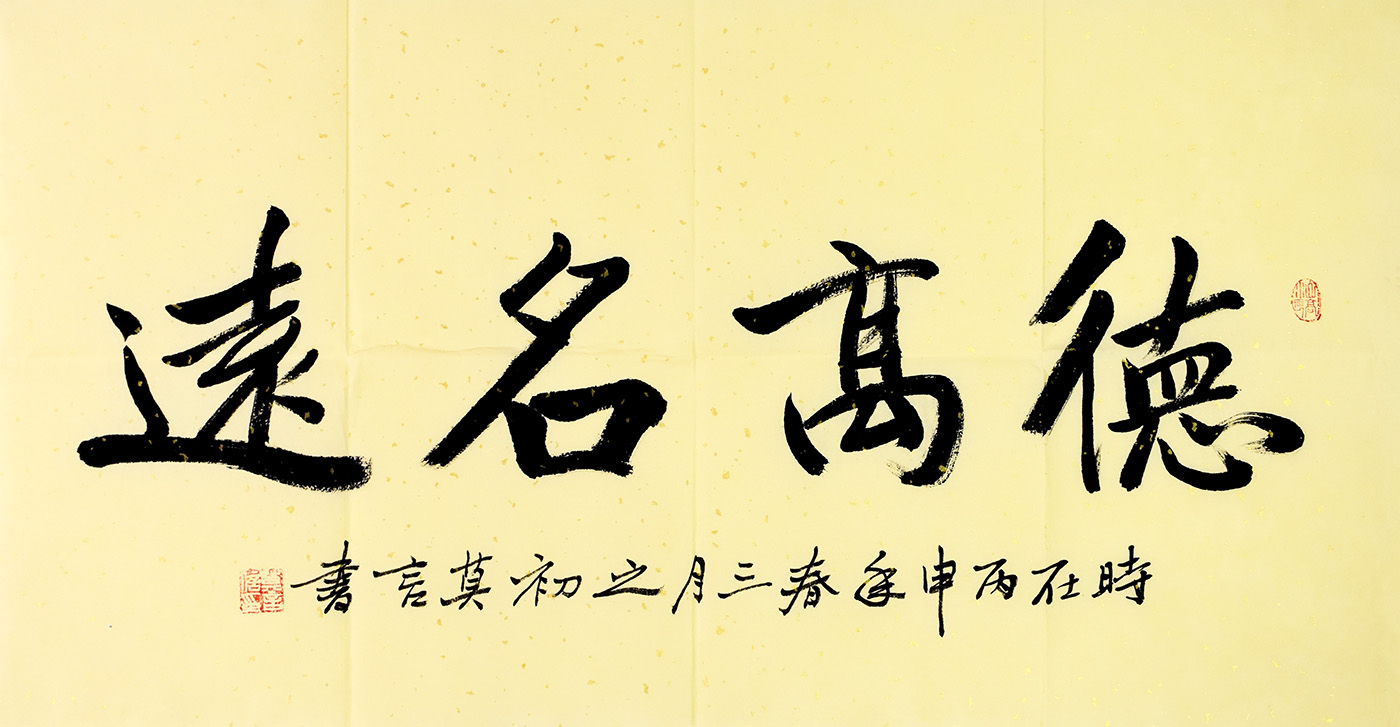 德高名遠
時在丙申年春三月之初莫言書